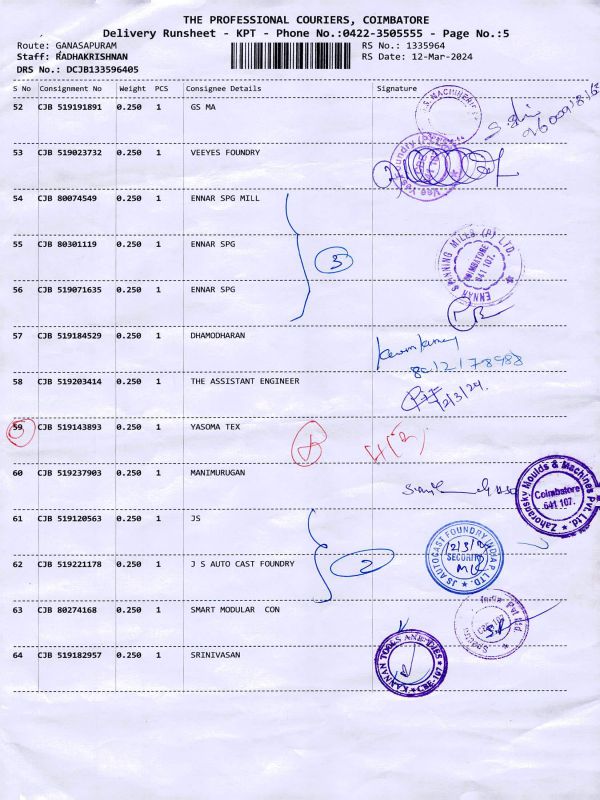 THE PROFESSIONAL COURIERS, COIMBATORE
Delivery Runsheet - KPT - Phone No.:0422-3505555 - Page No.:5
Route: GANASAPURAM RS No.: 1335964
Staff: RADHAKRISHNAN RS Date: 12-Mar-2024
DRS No.: DCJB133596405
S No Consignment No Weight PCS Consignee Details Signature
52 CJB 519191891 0.250 1 GS MA
53 CJB 519023732 0.250 1 VEEYES FOUNDRY
54 CJB 80074549 0.250 1 ENNAR SPG MILL
55 CJB 80301119 0.250 1 ENNAR SPG
3
SPINNING MILLS (P) LTD.
COIMBATORE
641 107.
56 CJB 519071635 0.250 1 ENNAR SPG
57 CJB 519184529 0.250 1 DHAMODHARAN
58 CJB 519203414 0.250 1 THE ASSISTANT ENGINEER
12/3/24.
59 CJB 519143893 0.250 1 YASOMA TEX
60 CJB 519237903 0.250 1 MANIMURUGAN
Zahoransky Moulds & Machines Pvt. Ltd.
Coimbatore
641 107.
61 CJB 519120563 0.250 1 JS
JS AUTOCAST FOUNDRY INDIA P LTD.
12/3/24
SECURITY
62 CJB 519221178 0.250 1 J S AUTO CAST FOUNDRY
2
63 CJB 80274168 0.250 1 SMART MODULAR CON
India Pvt Ltd
64 CJB 519182957 0.250 1 SRINIVASAN
KANNAN TOOLS AND DIES
CBE-107